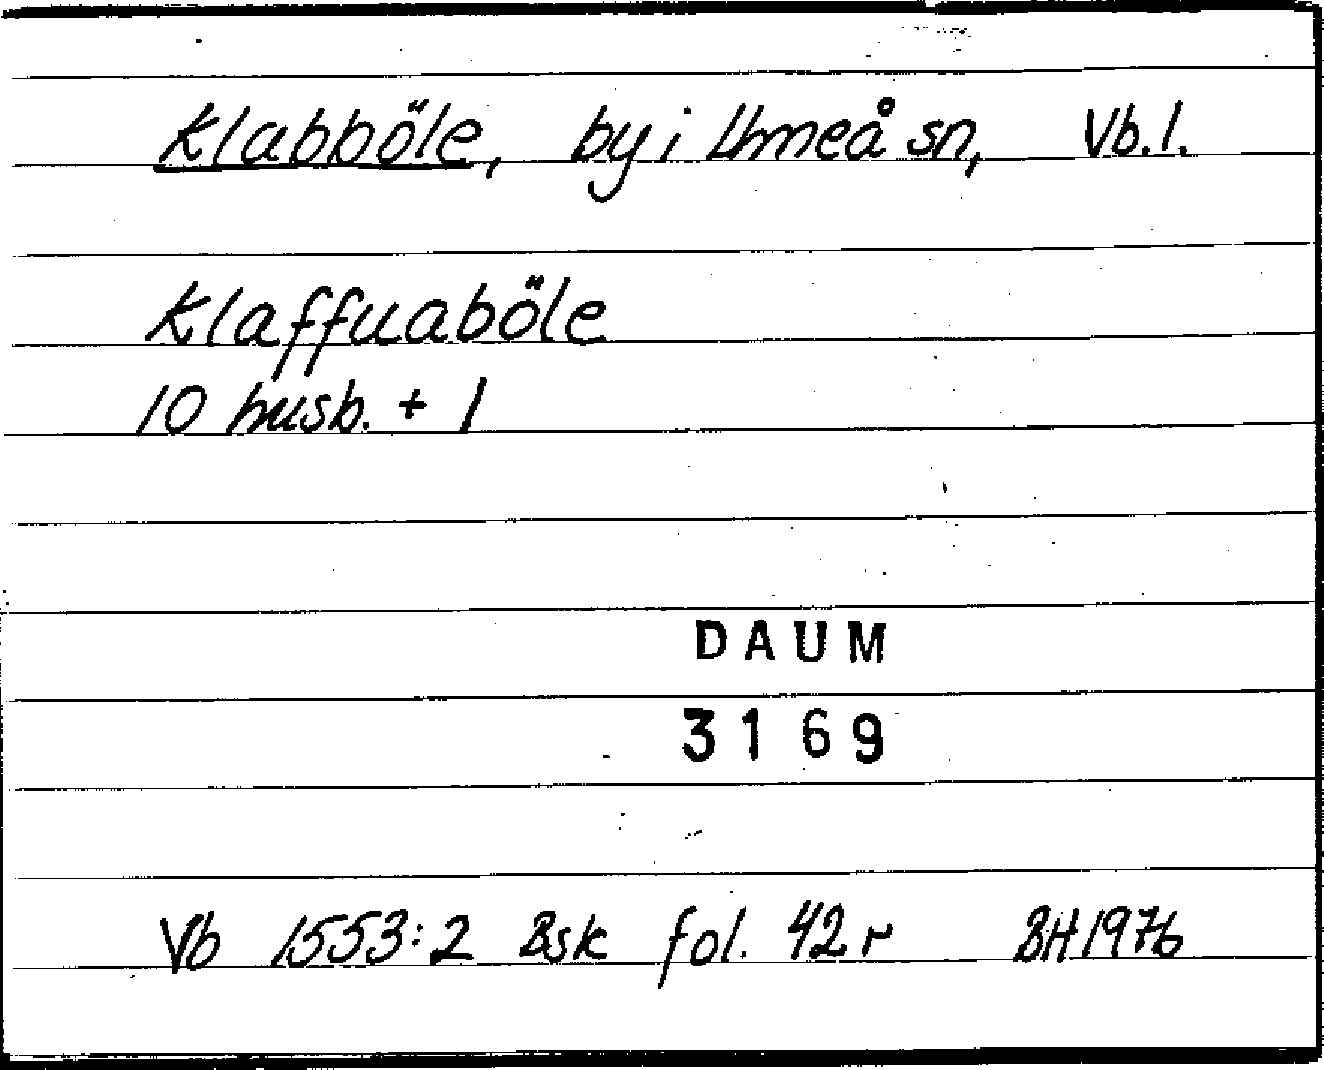 Klabböle, by i Umeå sn, Vb.l.
Klaffuaböle
10 husb. + 1
DAUM
3169
Vb 1553:2 Bsk fol. 42r BH 1976